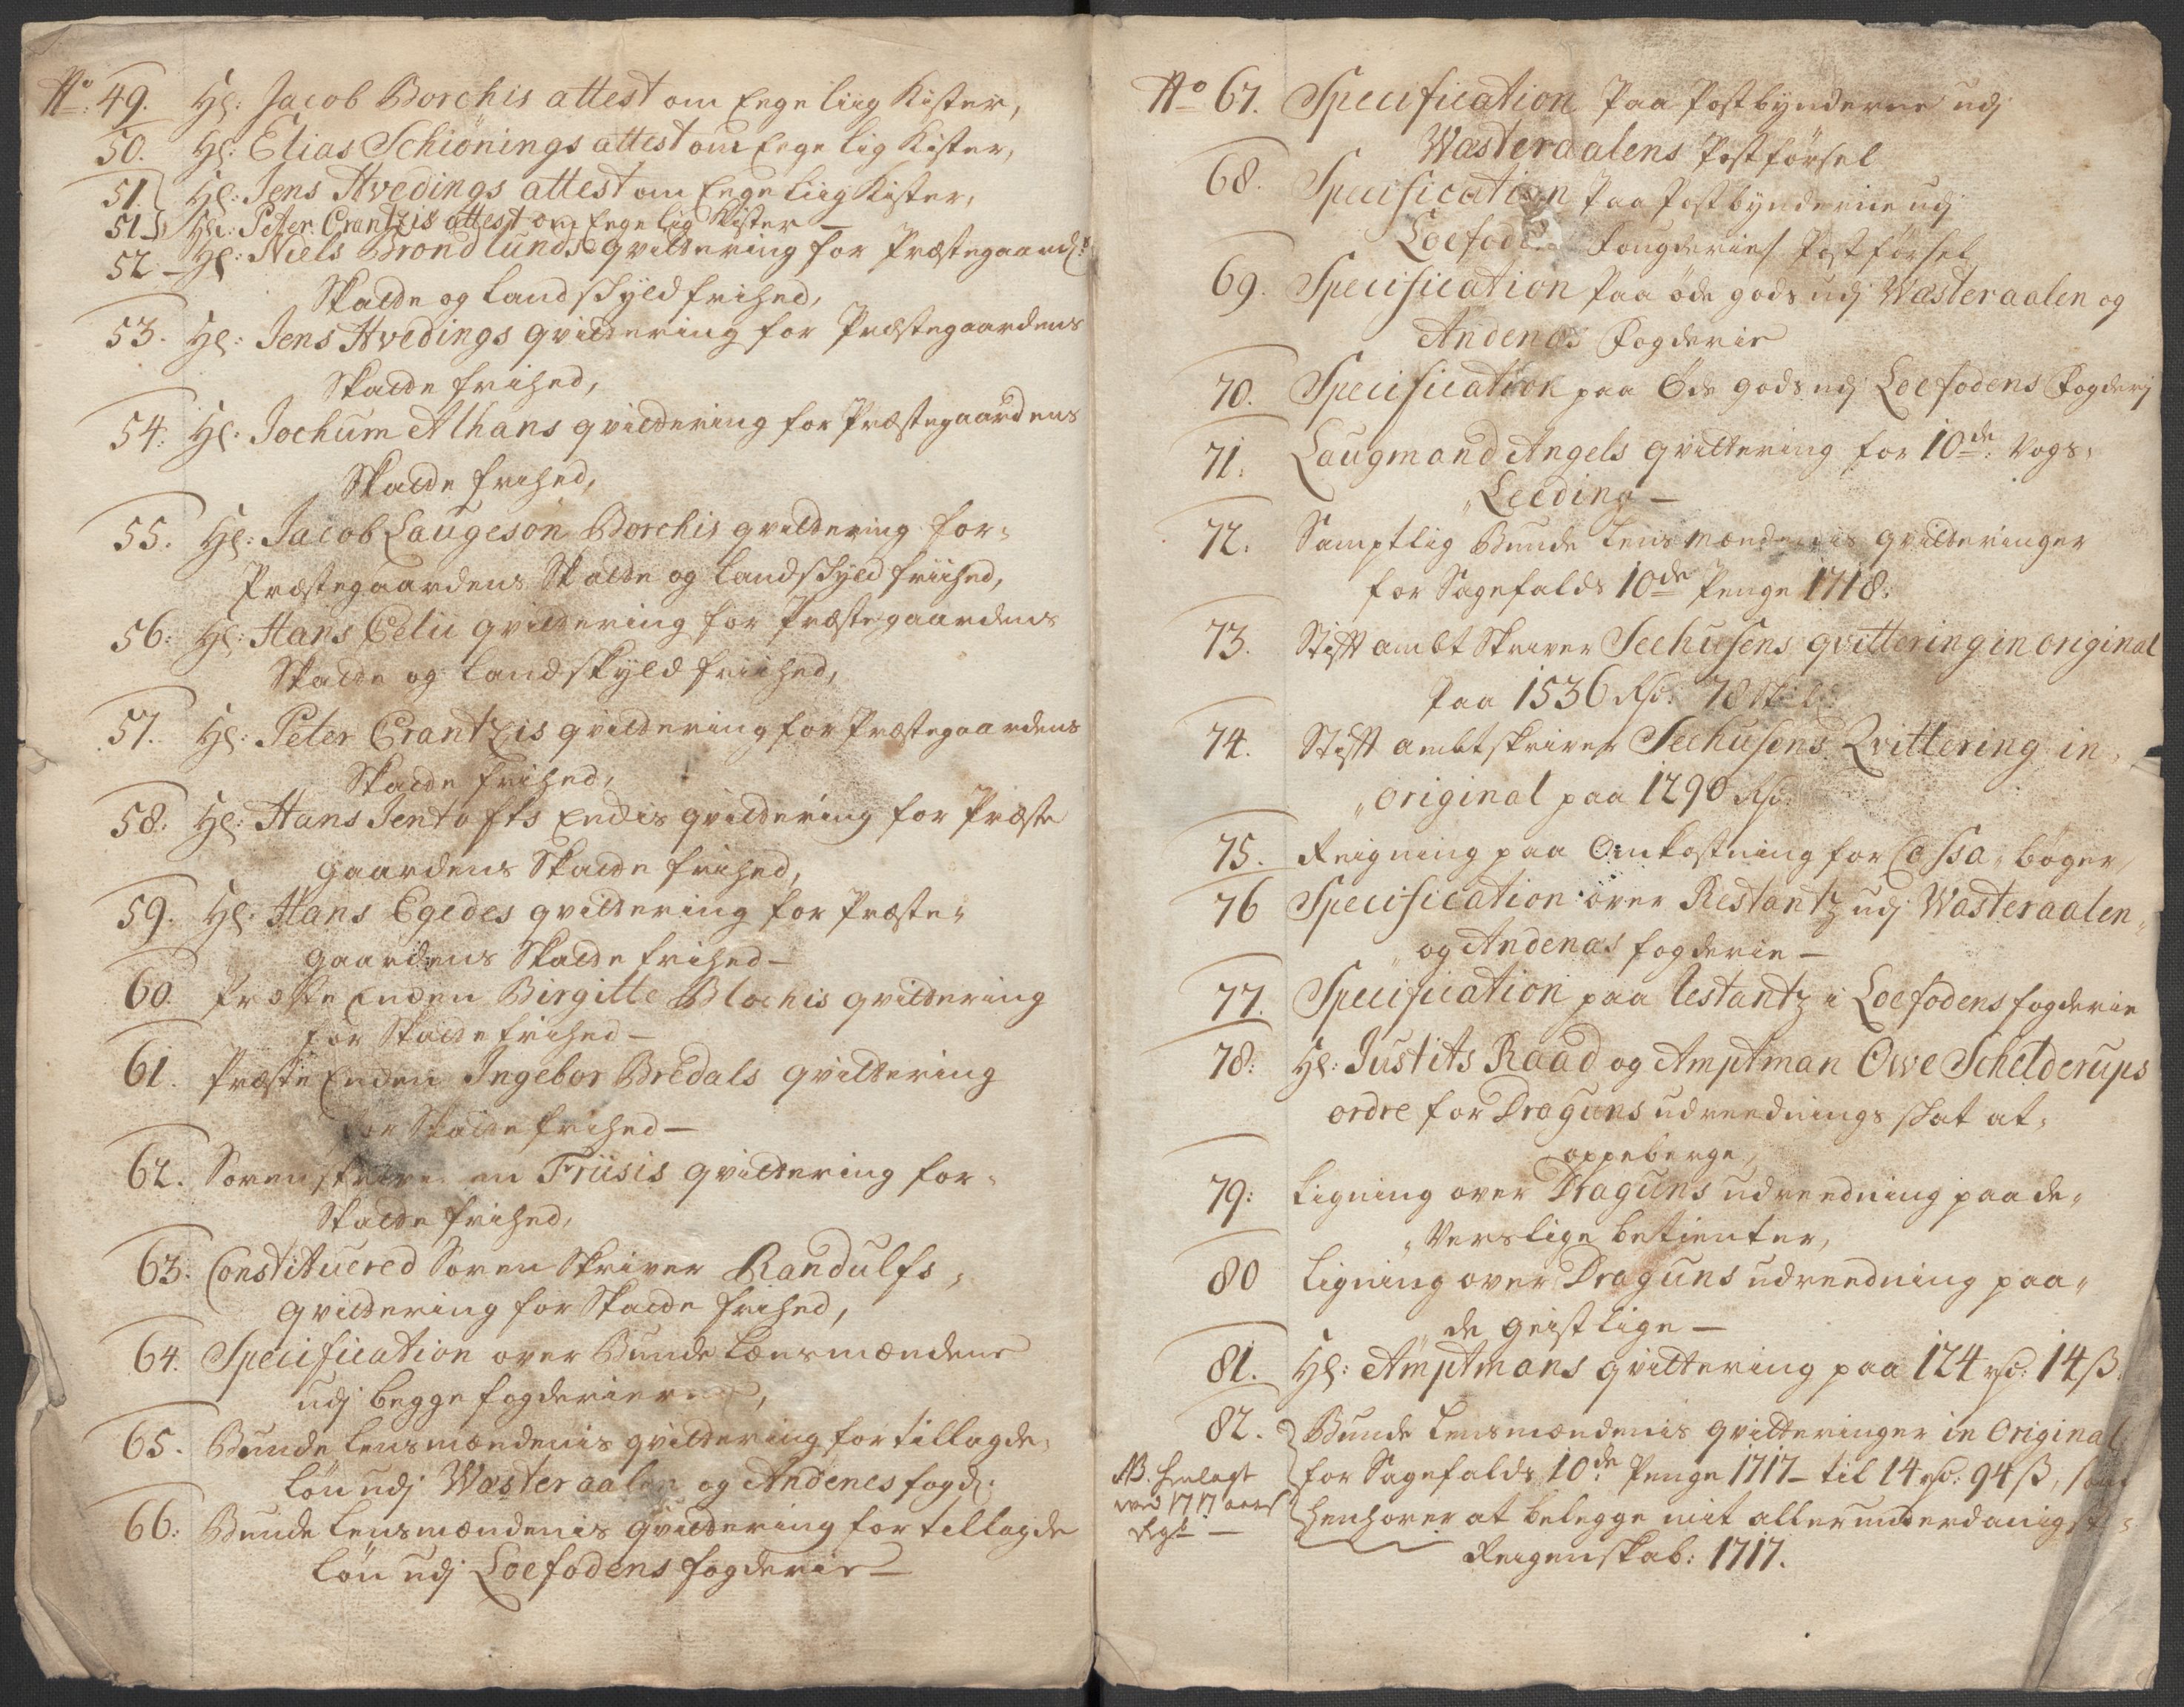 No: 49. Hr: Jacob Borchis attest om Eege liig Kister,
50. Hr: Elias Schiönings attest om Eege lig Kister,
51. Hr: Jens Hvedings attest om Eege liig Kister,
51½ Hr: Peter Crantzis attest om Eege lig Kister —
52 — Hr: Niels Brondlunds qvittering for Præstegaard:s
Skatte og Landskyld frihed,
53. Hr: Jens Hvedings qvittering for Præstegaardens
Skatte frihed,
54. Hr: Jochum Alhans qvittering for Præstegaardens
Skatte frihed,
55. Hr: Jacob Laugesön Borchis qvittering for-
Præstegaardens Skatte og Landskyld friihed,
56: Hr: Hans Celii qvittering for Præstegaardens
Skatte og Landskyld friihed,
57. Hr: Peter Crantzis qvittering for Præstegaardens
Skatte frihed,
58: Hr: Hans Jentofts Enckis qvittering for Præste
gaardens Skatte frihed,
59. Hr: Hans Egedes qvittering for Præste-
gaardens Skatte frihed —
60. Præste Encken Birgitte Blochis qvittering
for Skatte frihed —
61. Præste Encken Ingebor Bredals qvittering
for Skatte frihed —
62. Sorenskriveren Friisis qvittering for-
Skatte frihed,
63. Constituered Sorenskriver Randulfs,
qvittering for Skatte frihed,
64. Specification over Bunde Lænsmændene
udj begge fogderierne,
65. Bunde lensmændenis qvittering for tillagde,
lön udj Wæsteraalen og Andenes fogd:
66: Bunde lensmændenis qvittering for tillagde
lön udj Loefodens fogderie —
No 67. Specification Paa Postbynderne udj
Wæsteraalens Postförsel
68. Specification Paa Postbynderne udj
Loefodens Fougderies Postförsel
69. Specification Paa öde gods udj Wæsteraalen og
Andenæs Fogderie
70. Specification paa Öde gods udj Loefodens Fogderj
71. Laugmand Angels qvittering for 10de: Vogs,
Leeding —
72. Samptlig Bunde Lensmændenis qvitteringer
for Sagefalds 10de Penge 1718:
73. Stift ambt skriver Seehusens qvittering in original
Paa 1536 Rd: 78
74. Stift ambtskriver Seehusens Qvittering in,
original paa 1290 Rd:
75. Reigning paa Omkostning for Cassa, böger
76 Specification over Restantz udj Wæsteraalen,
og Andenæs fogderie —
77. Specification paa Restantz i Loefodens fogderie
78: Hr: Justits Raad og Amptman Owe Schelderups
ordre for Draguns udreednings skat at,
oppeberge,
79: Ligning over Draguns udreedning paa de,
Verslige betienter,
80 Ligning over Draguns udreedning paa,
de geistlige —
81. Hr: Amptmans qvittering paa 124 rd: 14 ß.
82. Bunde Lensmændenis qvitteringer in Original
for Sagefalds 10de Penge 1717 — til 14 rd: 94 ß, som
henhörer at belegge mit allerunderdanigste
Reigenskab: 1717.
NB. henlagt
ved 1717 aars
Regsk —